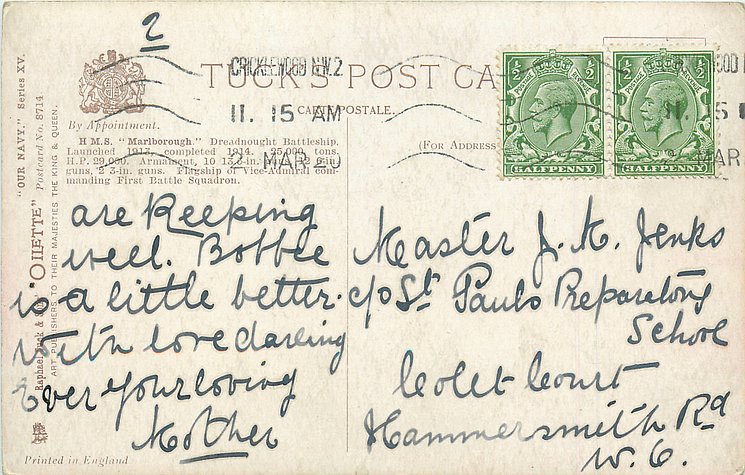 2
CRICKLEWOOD N.W.2
11. 15 AM
MAR
TUCK'S POST CA
CARTE POSTALE.
(FOR ADDRESS
By Appointment.
H.M.S. "Marlborough." Dreadnought Battleship.
Launched 1912, completed 1914. 25,000 tons.
H.P. 29,000. Armament, 10 13.5-in., 12 6-in.
guns, 2 3-in. guns. Flagship of Vice-Admiral com-
manding First Battle Squadron.
"OUR NAVY." Series XV.
"OILETTE" Postcard No. 8714
Raphael Tuck & Sons
ART PUBLISHERS TO THEIR MAJESTIES THE KING & QUEEN.
½ POSTAGE REVENUE ½
HALFPENNY
½ POSTAGE REVENUE ½
HALFPENNY
are keeping
well. Bobbee
is a little better.
with love darling
Ever your loving
Mother
Master J. M. Jenks
c/o St Pauls Preparatory
School
Colet Court
Hammersmith Rd
W. 6.
Printed in England